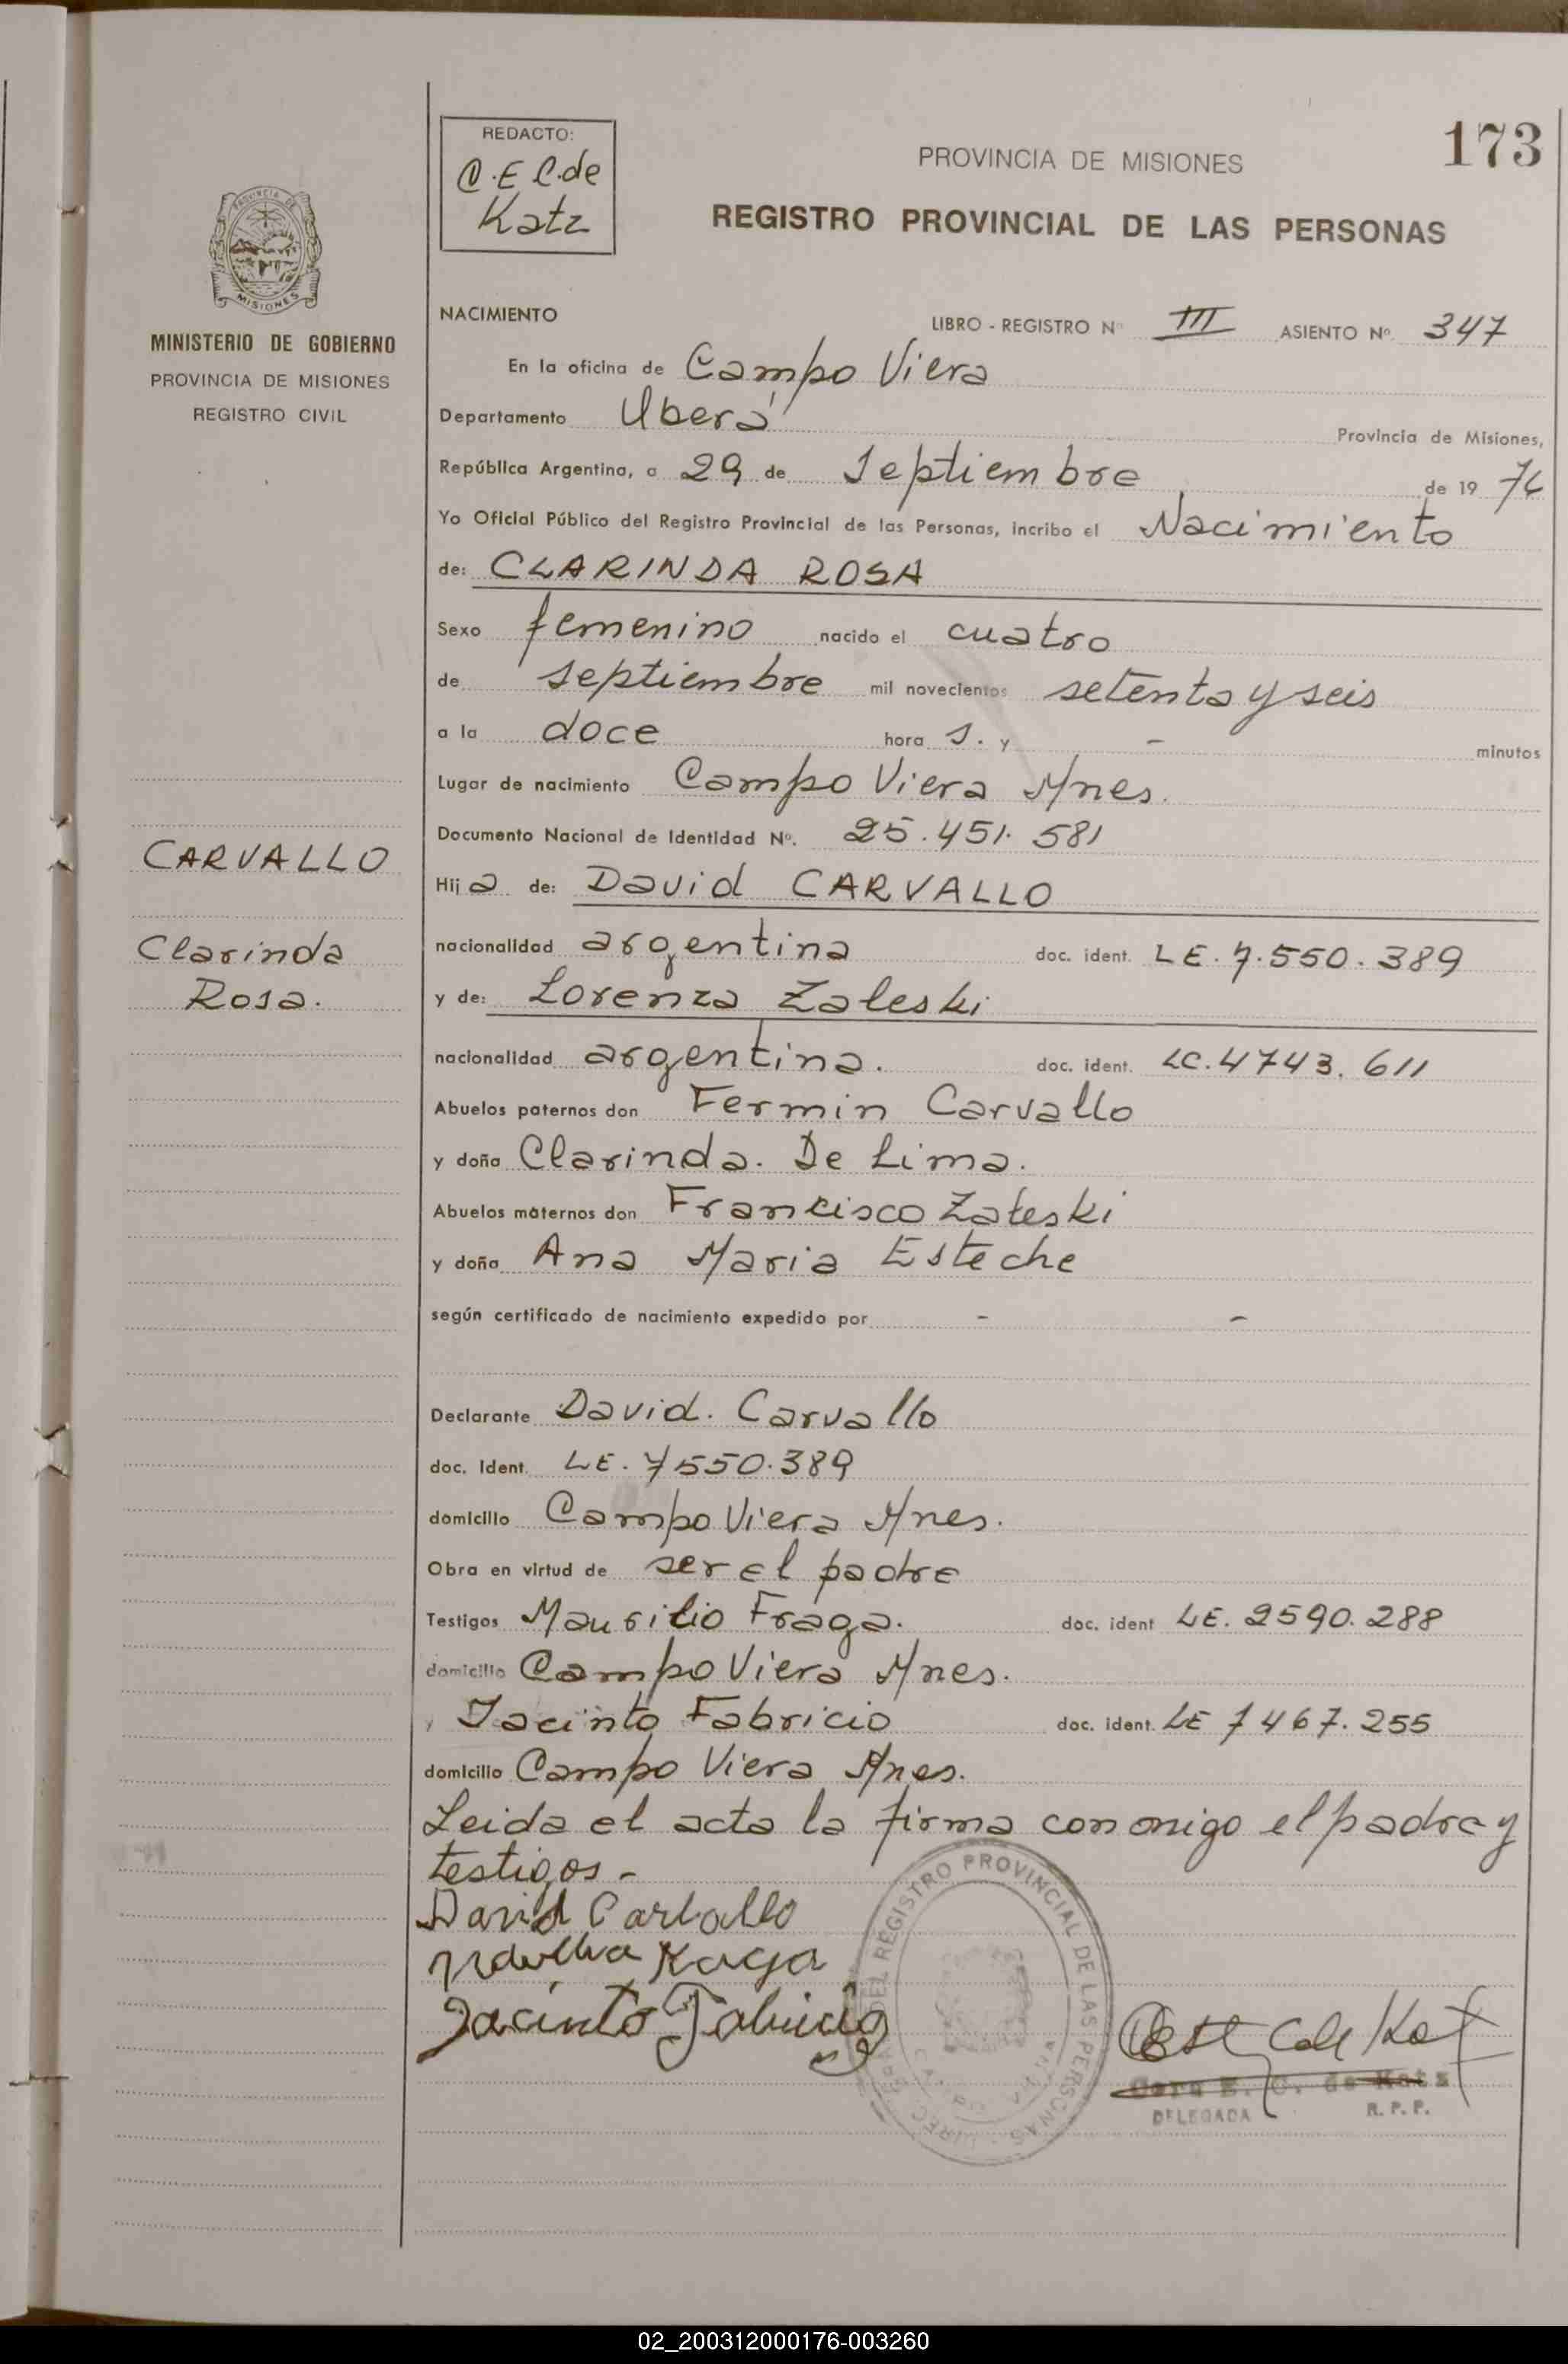 173
REDACTO:
C.E C.de
Katz
PROVINCIA DE MISIONES
REGISTRO PROVINCIAL DE LAS PERSONAS
PROVINCIA DE
MISIONES
MINISTERIO DE GOBIERNO
PROVINCIA DE MISIONES
REGISTRO CIVIL
NACIMIENTO
LIBRO - REGISTRO Nº III ASIENTO Nº. 347
En la oficina de Campo Viera
Departamento Uberá
Provincia de Misiones,
República Argentina, a 29 de Septiembre de 19 76
Yo Oficial Público del Registro Provincial de las Personas, incribo el Nacimiento
de: CLARINDA ROSA
Sexo femenino nacido el cuatro
de septiembre mil novecientos setenta y seis
a la doce hora s. y - minutos
Lugar de nacimiento Campo Viera Mnes.
Documento Nacional de Identidad Nº. 25.451.581
CARVALLO
Clarinda
Rosa.
Hij a de: David CARVALLO
nacionalidad argentina doc. ident. LE. 7.550.389
y de: Lorenza Zaleski
nacionalidad argentina. doc. ident. LC. 4743.611
Abuelos paternos don Fermin Carvallo
y doña Clarinda. De Lima.
Abuelos maternos don Francisco Zaleski
y doña Ana Maria Esteche
según certificado de nacimiento expedido por - -
Declarante David. Carvallo
doc. Ident. LE. 7550.389
domicilio Campo Viera Mnes.
Obra en virtud de ser el padre
Testigos Maurilio Fraga. doc. ident LE. 2590.288
domicilio Campo Viera Mnes.
y Jacinto Fabricio doc. ident. LE 7467.255
domicilio Campo Viera Mnes.
Leida el acta la firma con migo el padre y
testigos -
David Carballo
Jacinto Fabricio
REGISTRO PROVINCIAL DE LAS PERSONAS
C. de Katz
DELEGADA R. P. P.
02_200312000176-003260